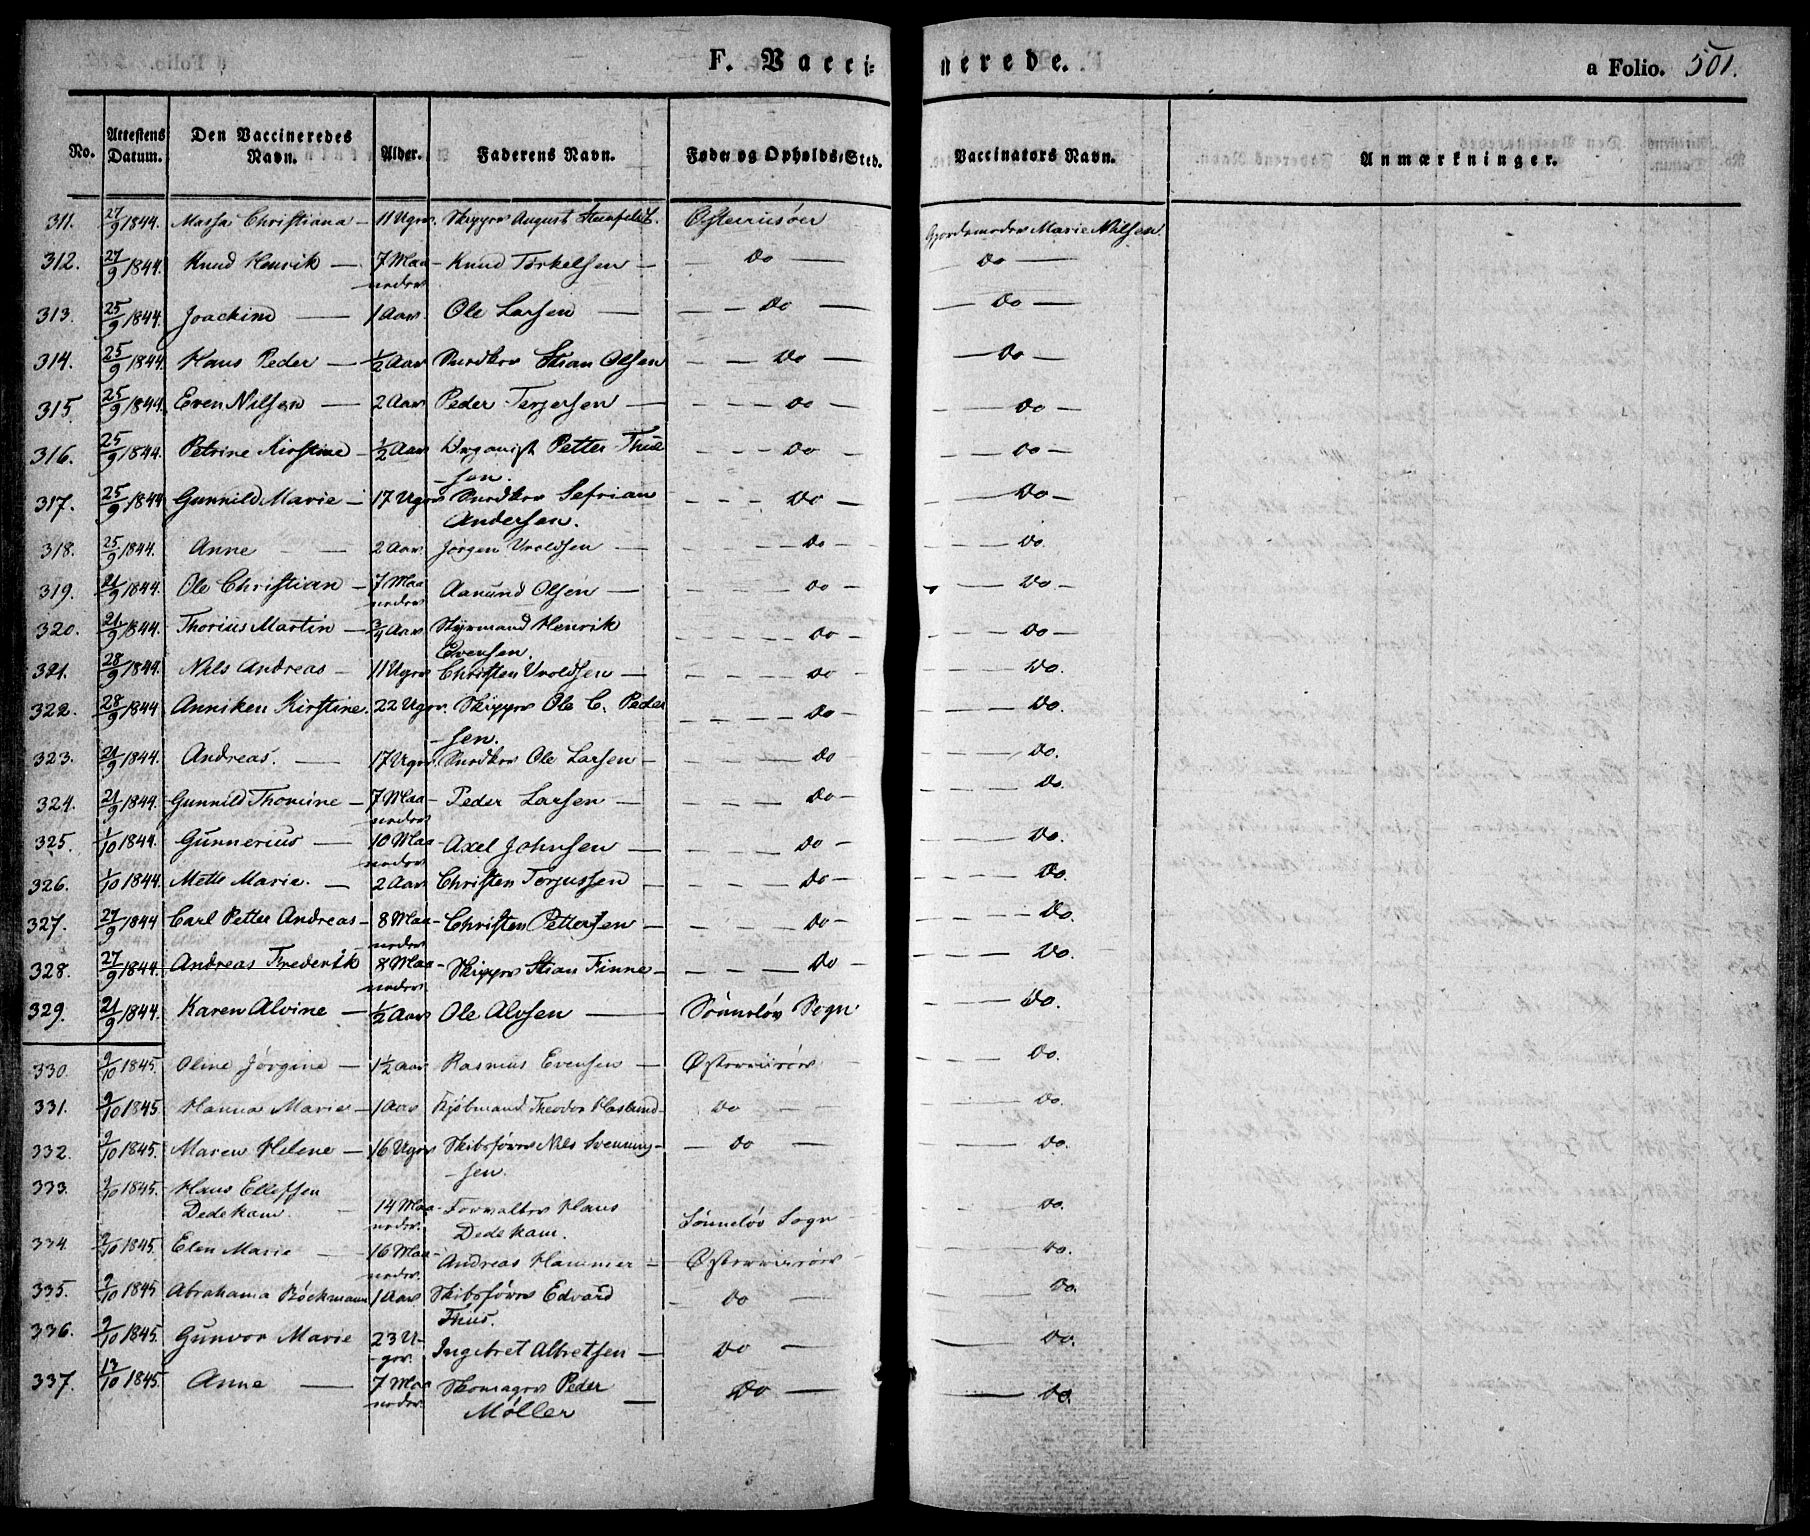 F. Vaccinerede.
a Folio. 501.
No. Attestens Datum. Den Vaccineredes Navn. Alder. Faderens Navn. Føde og Opholds-Sted. Vaccinators Navn. Anmærkninger.
311. 27/9 1844. Massa Christiana — 11 Uger. Skipper August Steenfeldt. Østerrusøer Gjordemoder Marie Nilsen.
312. 27/9 1844. Knud Henrik — 7 Maa- Knud Törkelsen — — Do — — Do —
neder
313. 25/9 1844. Joachim — 1 Aar. Ole Larsen — — — Do — — Do —
314. 25/9 1844. Hans Peder — 1/2 Aar Stian Olsen — — Do — — Do —
315. 25/9 1844. Even Nilsen — 2 Aar Peder Terjersen — — — Do — — Do —
316. 25/9 1844. Petrine Kirstine — 1/2 Aar Organist Petter Thue — — — Do — — Do —
sen.
317. 25/9 1844 Gunnild Marie — 17 Uger Sefrian — — — Do — — Do —
Andersen.
318. 25/9 1844. Anne — 2 Aar. Jørgen Uroldsen — — — Do — — Do.
319. 21/9 1844. Ole Christian — 7 Maa Aanund Olsen — — — Do — — Do —
neder
320. 21/9 1844. Thorius Martin — 3/4 Aar Styrmand Henrik — — — Do — — Do —
Evensen.
321. 28/9 1844. Nils Andreas — 11 Uger Christen Uroldsen — — — Do — — Do.
322. 28/9 1844 Anniken Kirstine. 22 Uger. Skipper Ole C. Peder — — — Do — — Do.
sen.
323. 21/9 1844. Andreas. — 17 Uger. Ole Larsen — — — Do — Do.
324. 21/9 1844. Gunnild Thomine — 7 Maa- Peder Larsen — — — Do — — Do.
neder
325. 1/10 1844. Gunnerius — 10 Maa Axel Johnsen — — — Do — — Do.
neder
326. 1/10 1844. Mette Marie. — 2 Aar Christen Terjussen — — — Do — — Do.
327. 27/9 1844 Carl Petter Andreas — 8 Maa- Christen Pettersen — — — Do — — Do.
neder
328. 27/9 1844. Andreas Frederik 8 Maa- Skipper Stian Finne — — — Do — — Do.
neder
329. 21/9 1844. Karen Alvine — 1/2 Aar Ole Alvsen — Sønneløv Sogn — Do.
330. 9/10 1845. Oline Jørgine — 1 1/2 Aar Rasmus Evensen — Østerriisøer — Do.
331. 9/10 1845 Hanna Marie — 1 Aar Kjøbmand Theodor Haslund — Do — — Do.
332. 9/10 1845. Maren Helene — 16 Uger Skibsfører Nils Svenning- — Do — — Do.
sen.
333. 9/10 1845. Hans Ellefsen
Dedekam. — 14 Maa- Forvalter Hans Sønneløv Sogn — Do.
neder. Dedekam.
334 9/10 1845. Elen Marie — 16 Maa- Andreas Hammer — Østerriisøer — Do.
neder.
335. 9/10 1845 Abrahama Böckmann 1 Aar Skibsfører Edvard — Do — — Do.
Thus.
336. 9/10 1845. Gunvor Marie 23 U- Ingebret Albretsen — Do — — Do.
ger.
337. 13/10 1845. Anne — 7 Maa Skomager Peder — Do — — Do.
neder. Møller